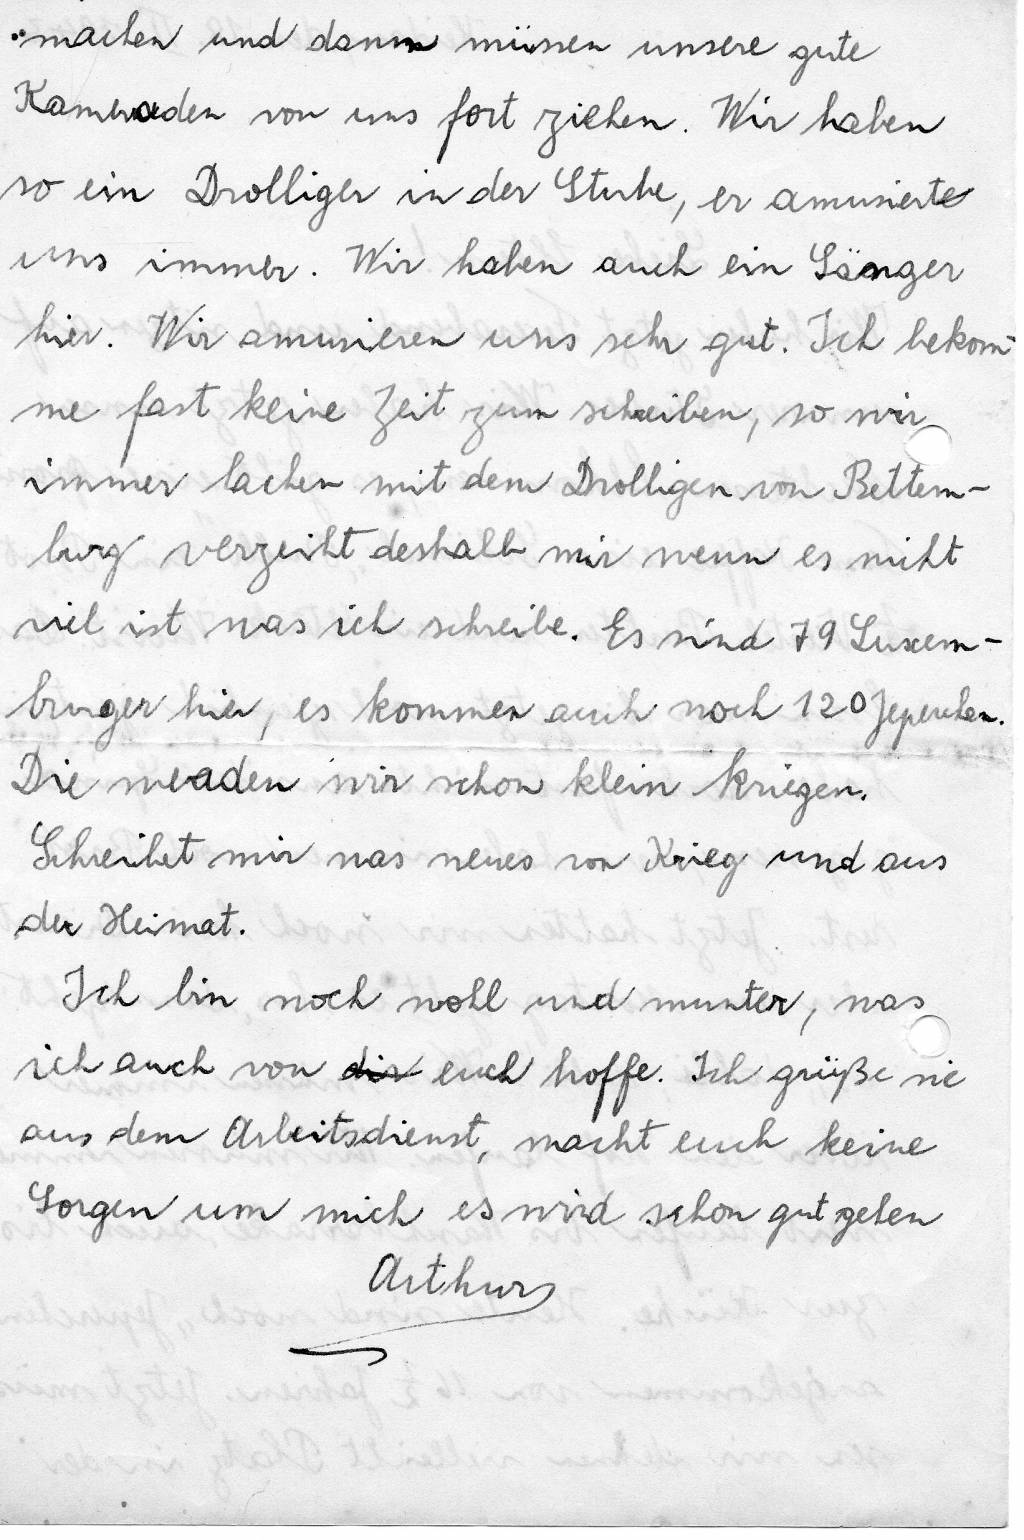 machen und dann müssen unsere gute
Kameraden von uns fort ziehen. Wir haben
so ein Drolliger in der Stube, er amusierte
uns immer. Wir haben auch ein Sänger
hier. Wir amusieren uns sehr gut. Ich bekom-
me fast keine Zeit zum schreiben, so wir
immer lachen mit dem Drolligen von Bettem-
burg verzeiht deshalb mir wenn es nicht
viel ist was ich schreibe. Es sind 79 Luxem-
burger hier, es kommen auch noch 120 Jepenchen.
Die werden wir schon klein kriegen.
Schreibet mir was neues von Krieg und aus
der Heimat.
Ich bin noch wohl und munter, was
ich auch von dir euch hoffe. Ich grüße sie
aus dem Arbeitsdienst, macht euch keine
Sorgen um mich es wird schon gut gehen
Arthur